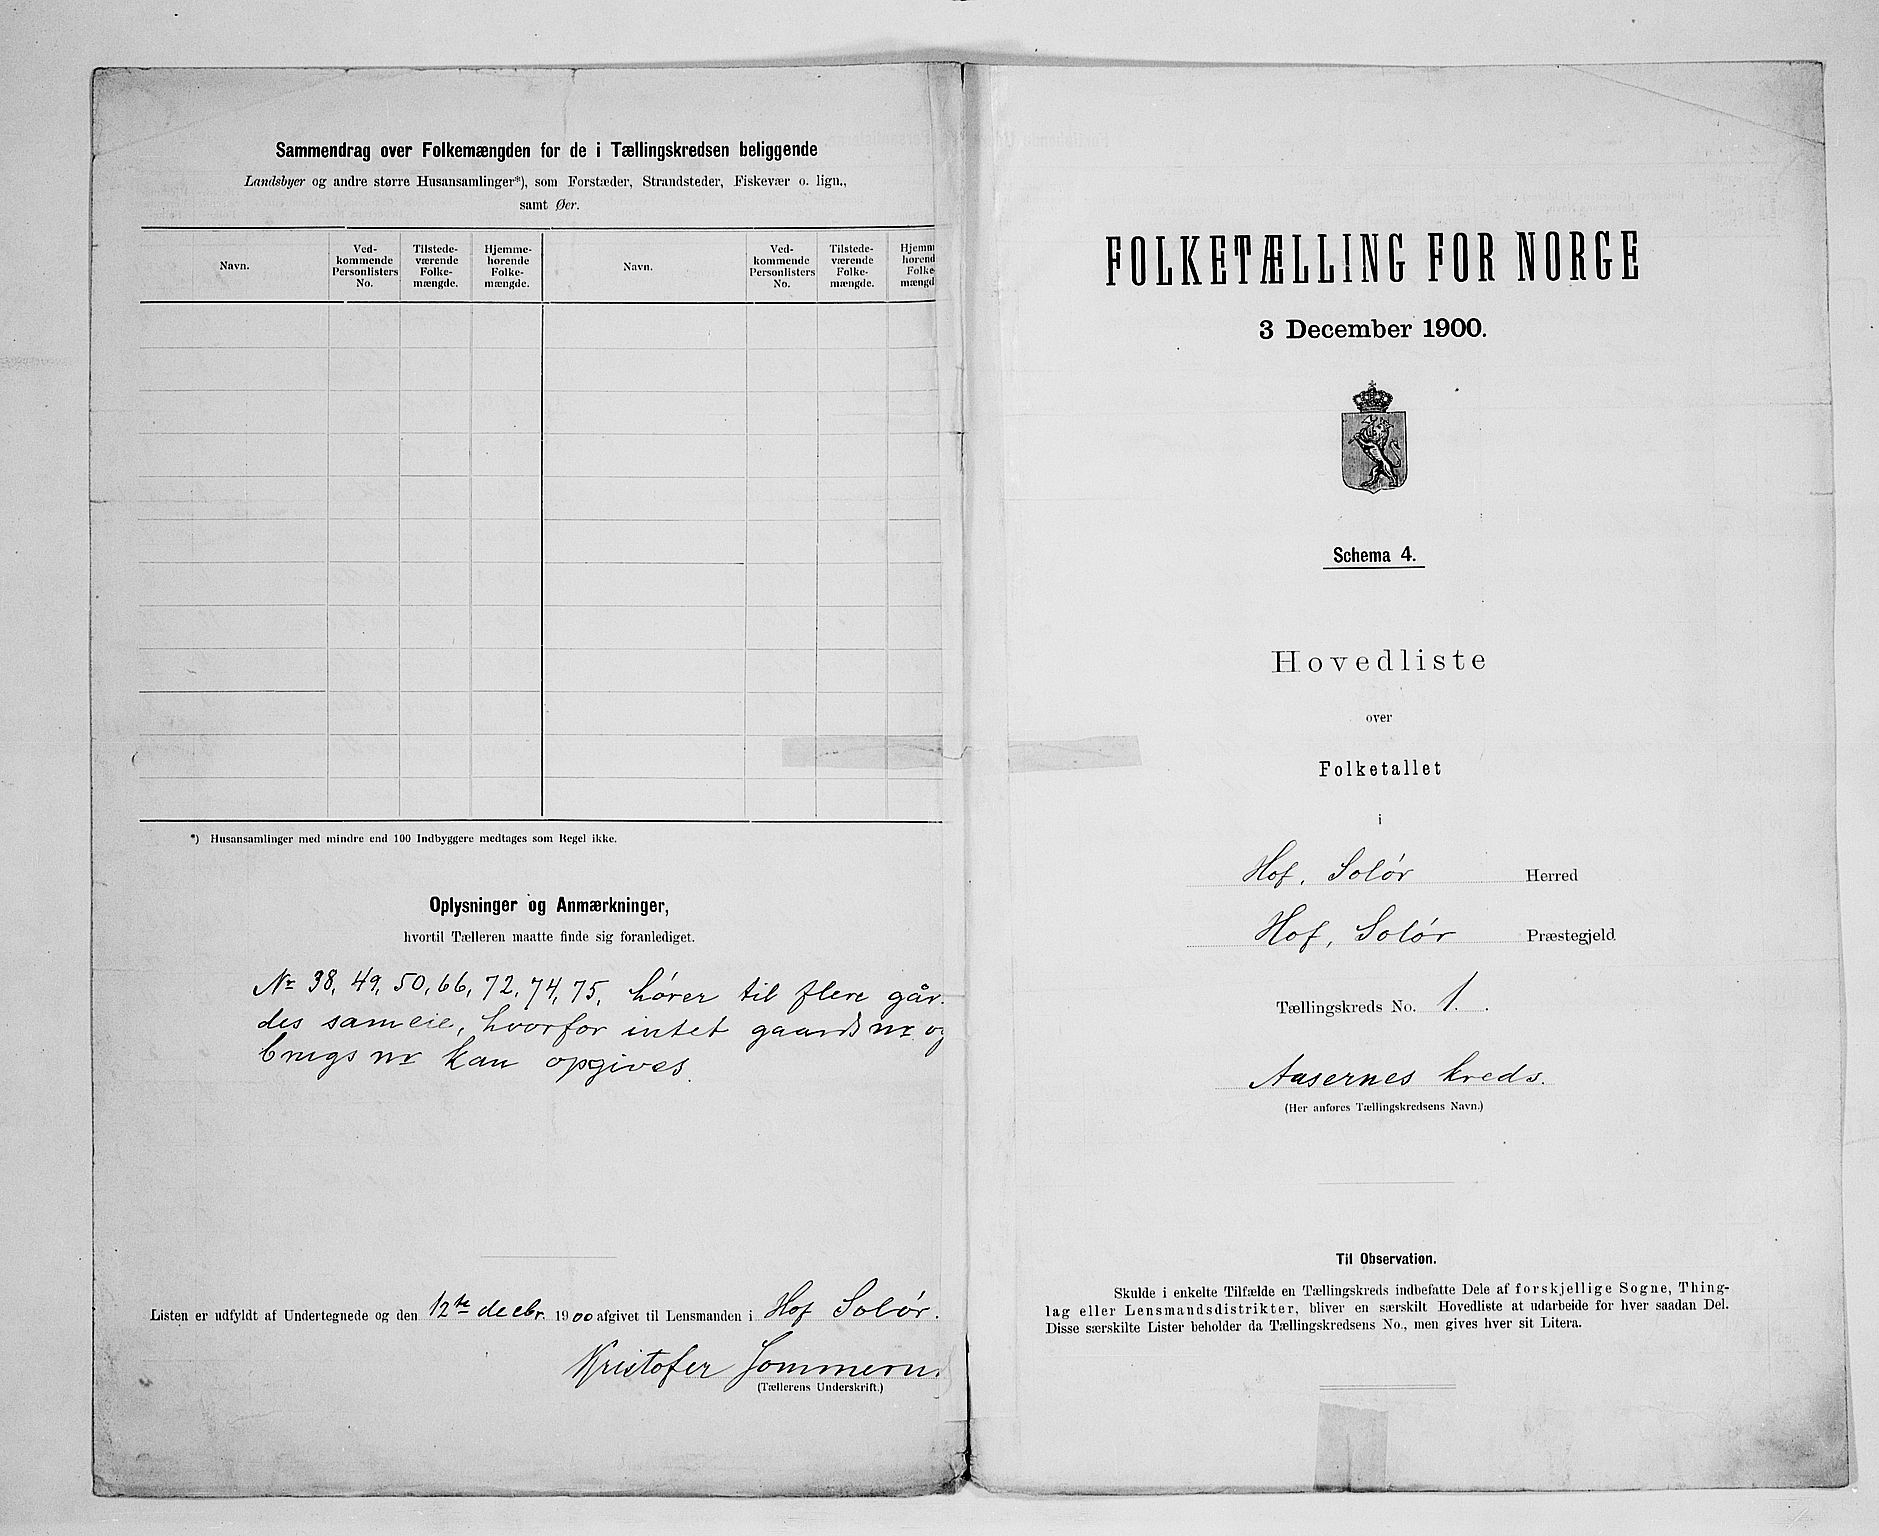 Sammendrag over Folkemængden for de i Tællingskredsen beliggende
Landsbyer og andre større Husansamlinger*), som Forstæder, Strandsteder, Fiskevær o. lign.,
samt Øer.
Navn.
Ved-
kommende
Personlisters
No.
Tilstede-
værende
Folke-
mængde.
Hjemme-
hørende
Folke-
mængde.
Navn.
Ved-
kommende
Personlisters
No.
Tilstede-
værende
Folke-
mængde.
Hjemm
hørend
Folke
mængd
*) Husansamlinger med mindre end 100 Indbyggere medtages som Regel ikke.
Oplysninger og Anmærkninger,
hvortil Tælleren maatte finde sig foranlediget.
Nr 38, 49, 50, 66, 72, 74, 75, hører til flere går-
des sameie, hvorfor intet gaards nr og
brugs nr kan opgives.
Listen er udfyldt af Undertegnede og den 12te decbr. 1900 afgivet til Lensmanden i Hof Solør.
Kristofer
(Tællerens Underskrift.)
FOLKETÆLLING FOR NORGE
3 December 1900.
Schema 4.
Hovedliste
over
Folketallet
i
Hof, Solør Herred
Hof, Solør Præstegjeld
Tællingskreds No. 1.
Aasernes kreds.
(Her anføres Tællingskredsens Navn.)
Til Observation.
Skulde i enkelte Tilfælde en Tællingskreds indbefatte Dele af forskjellige Sogne, Thing-
lag eller Lensmandsdistrikter, bliver en særskilt Hovedliste at udarbeide for hver saadan Del.
Disse særskilte Lister beholder da Tællingskredsens No., men gives hver sit Litera.